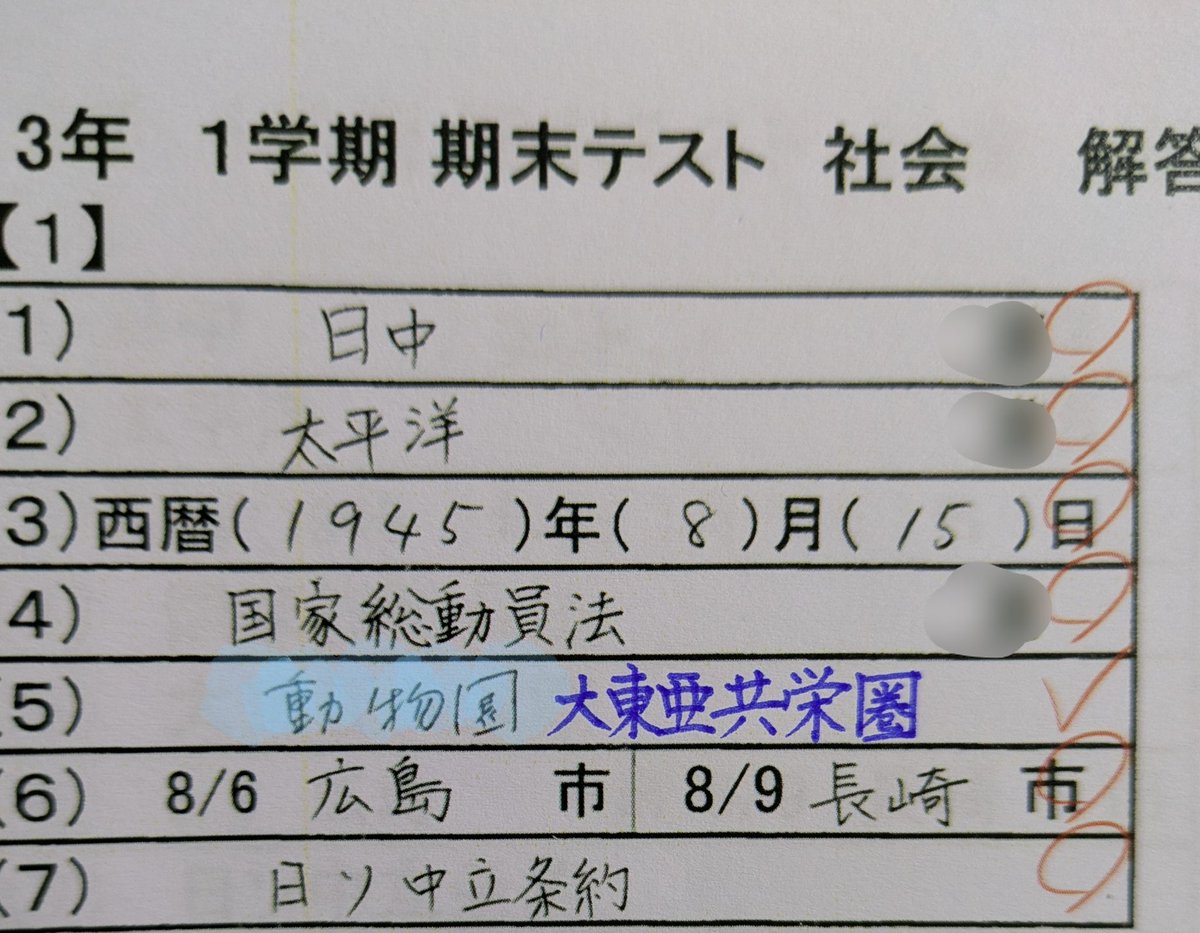 3年 1学期 期末テスト 社会 解答
【1】
1) 日中
2) 太平洋
3) 西暦(1945)年(8)月(15)日
4) 国家総動員法
(5) 動物園 大東亜共栄圏
(6) 8/6 広島 市 8/9 長崎 市
(7) 日ソ中立条約